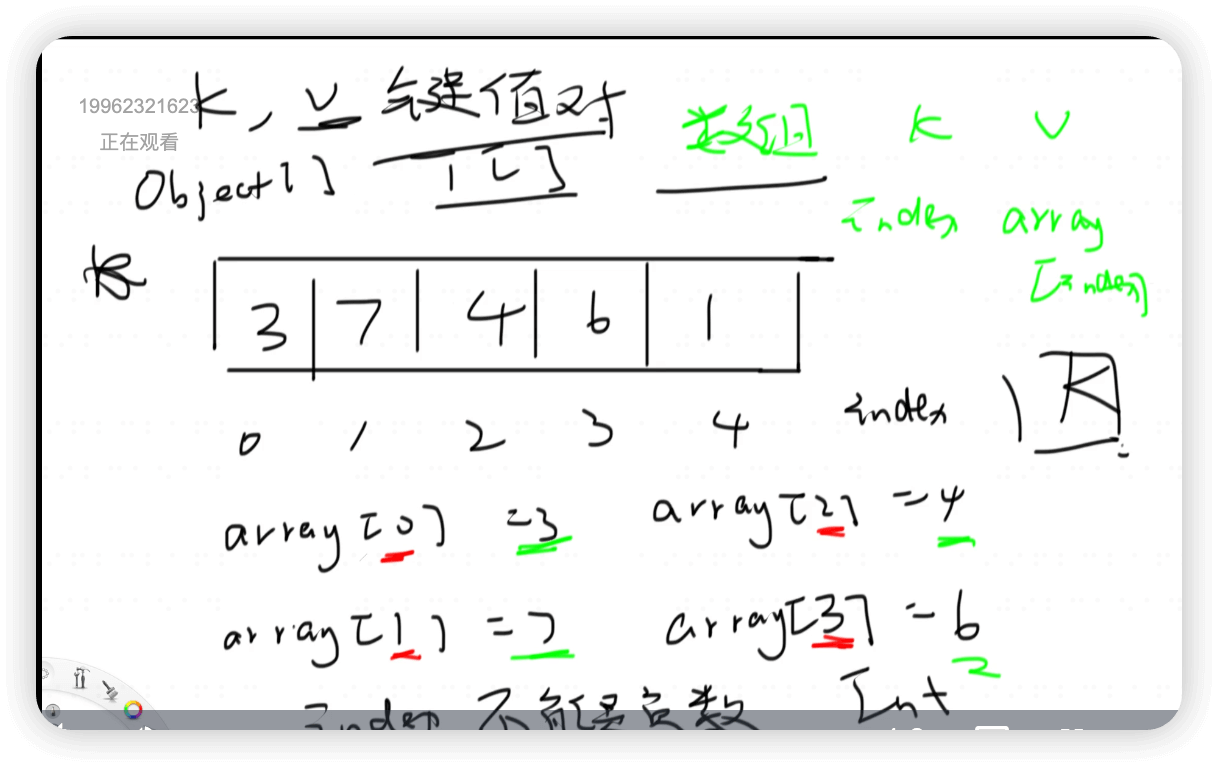 K, V 键值对
19962321623
正在观看
Object[]
T[]
数组 K V
index array
[index]
3 7 4 6 1
0 1 2 3 4 index
K
array[0] =3 array[2] =4
array[1] =7 array[3] =6
2
index 不能是负数 Int